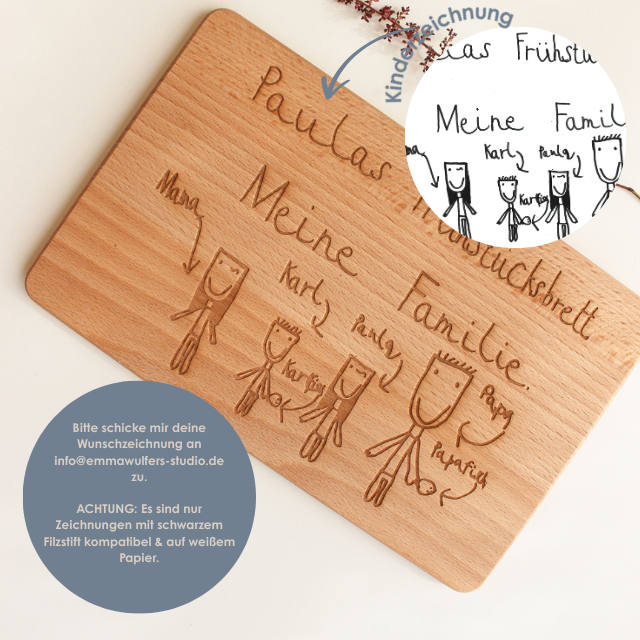 Kinderzeichnung
Frühstü
Meine Famil
Karl Paula
Paulas Frühstücksbrett
Meine Familie.
Mama
Karl
Paula
Papa
Papafisch
Bitte schicke mir deine
Wunschzeichnung an
info@emmawulfers-studio.de
zu.
ACHTUNG: Es sind nur
Zeichnungen mit schwarzem
Filzstift kompatibel & auf weißem
Papier.